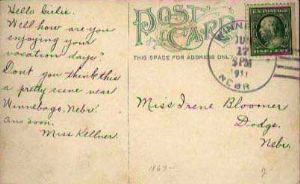 Hello Girlie.
Well how are you
enjoying your
vacation days?
Dont you think this
a pretty scene near
Winnebago, Nebr.
ans soon.
Miss Kellner
POST
CARD
THIS SPACE FOR ADDRESS ONLY
WINNE
27
PM
NEBR
Miss Irene Bloomer
Dodge,
Nebr.